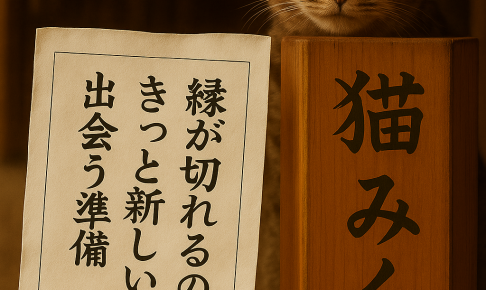 縁が切れるの
きっと新しい
出会う準備
猫みく